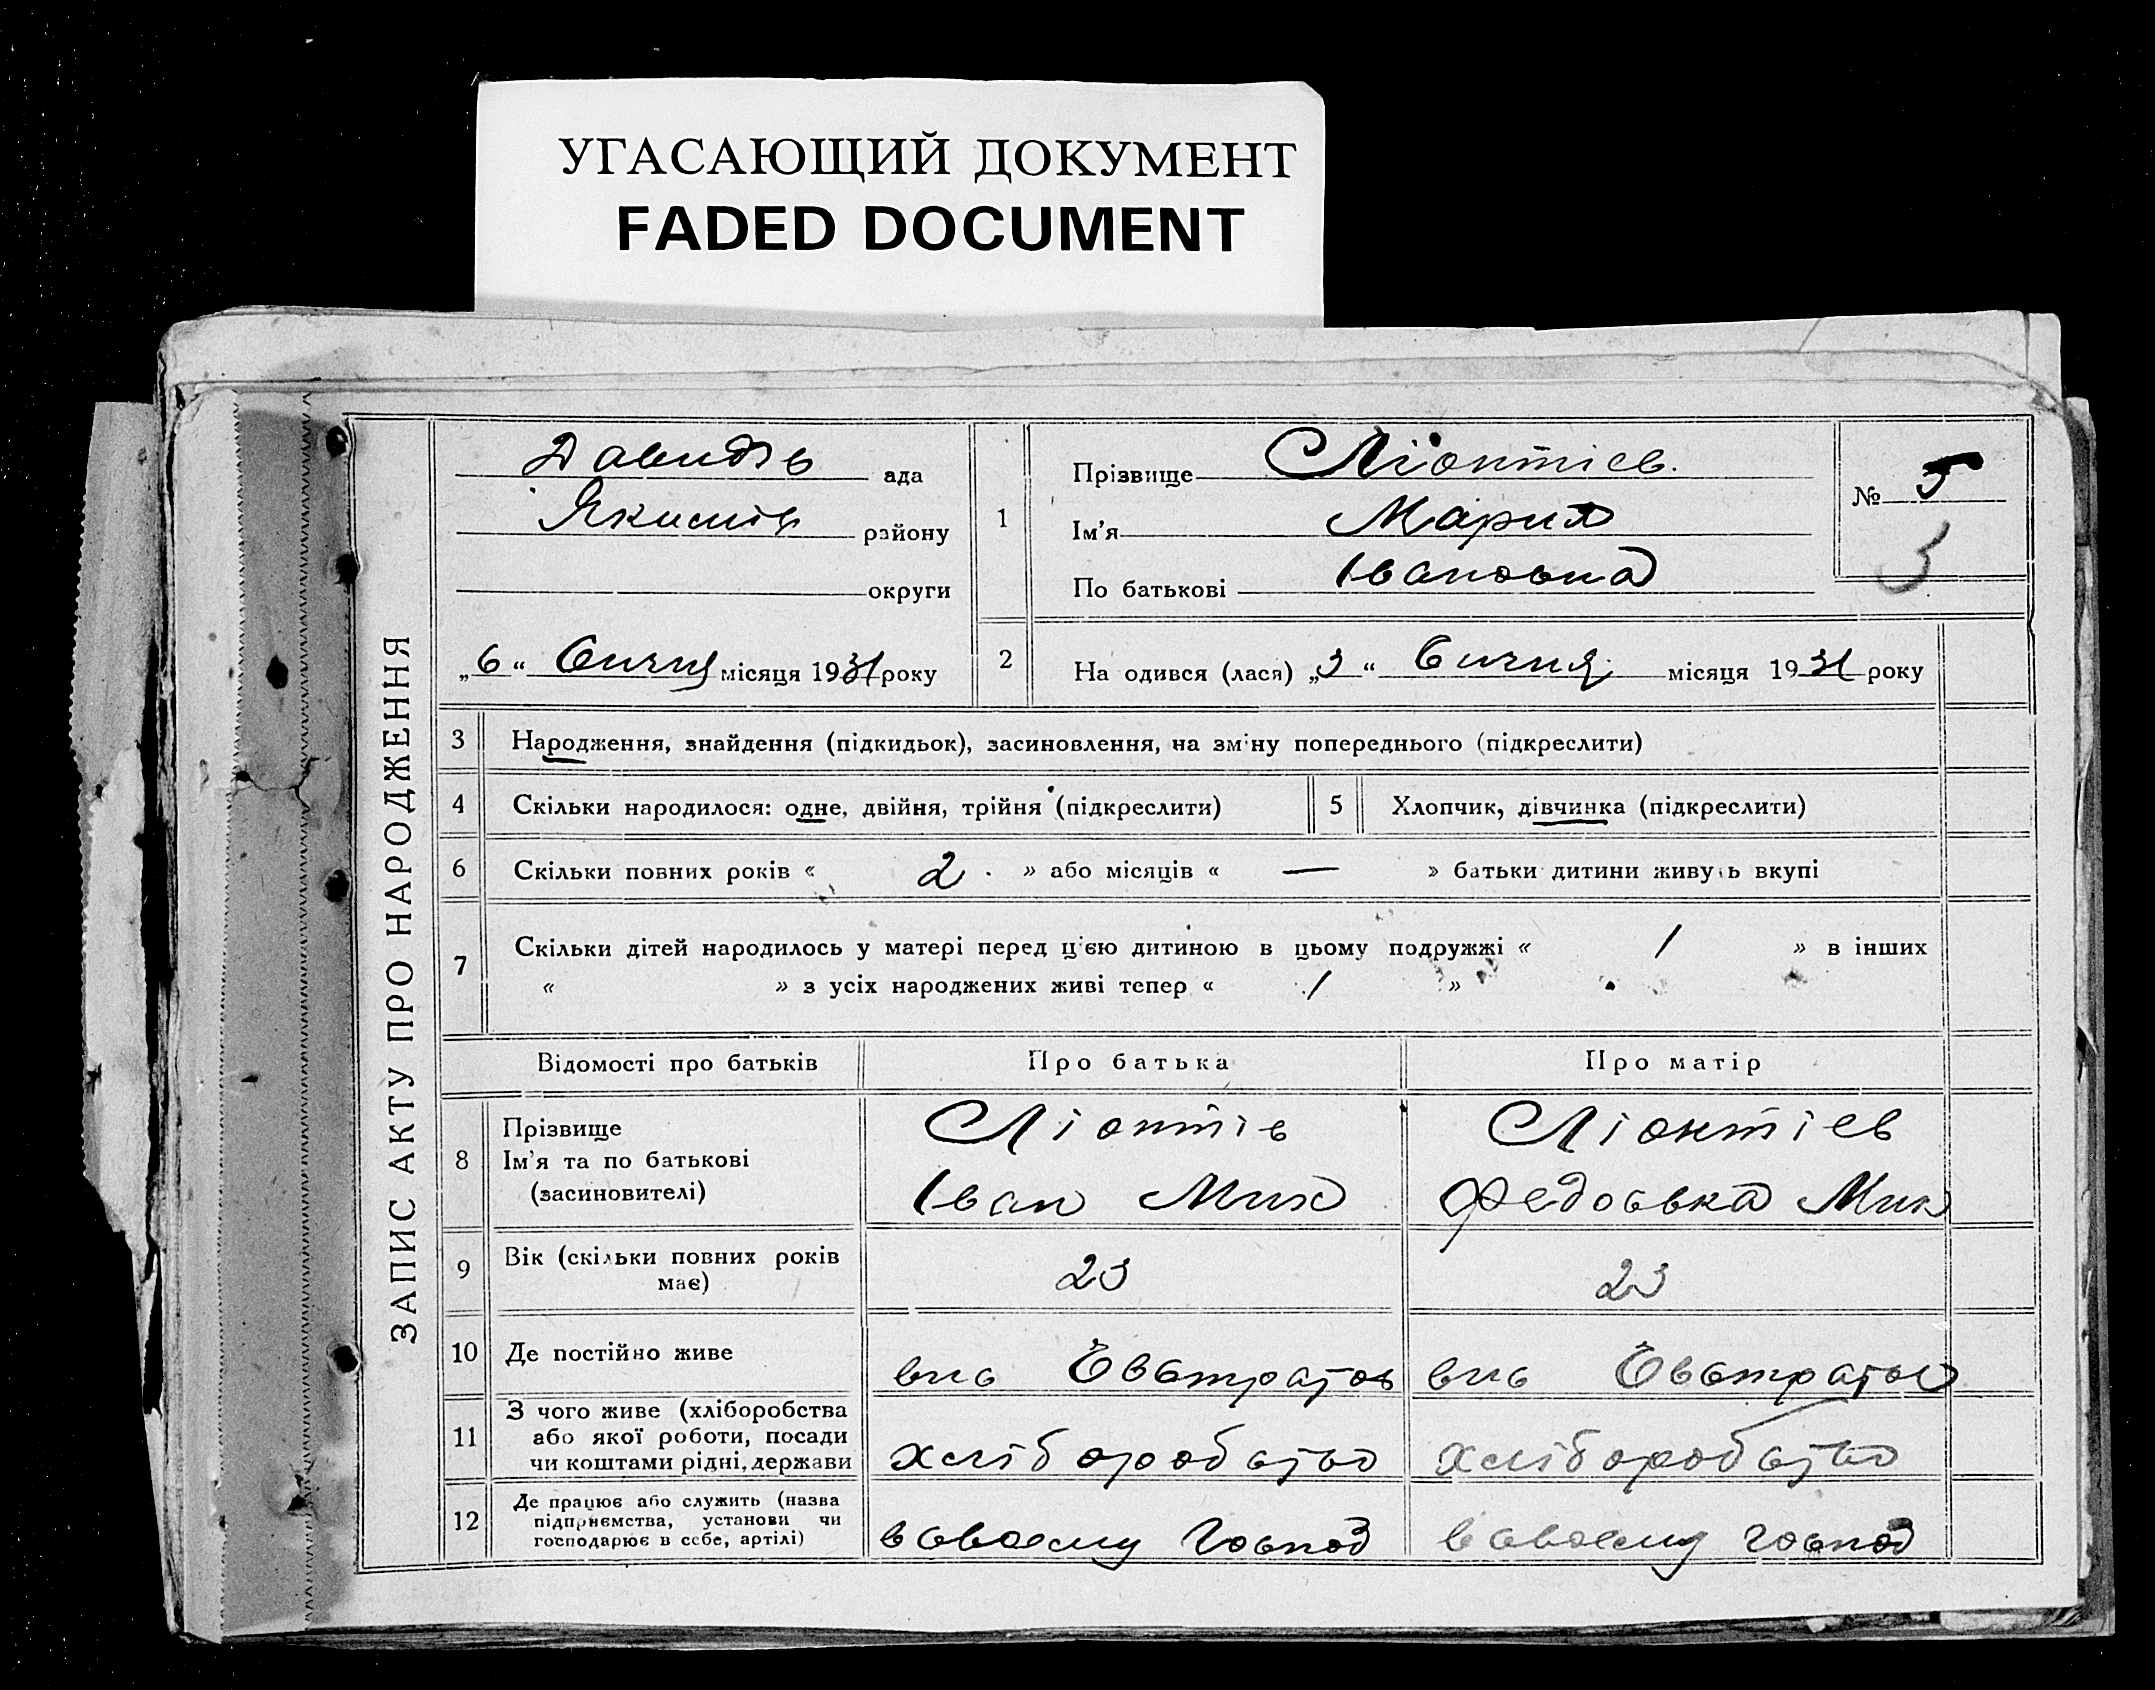 УГАСАЮЩИЙ ДОКУМЕНТ
FADED DOCUMENT
ЗАПИС АКТУ ПРО НАРОДЖЕННЯ
Давидів ада
Якимів району
округи
„6“ Січня місяця 1931 року
1
Прізвище Ліонтієв.
Ім'я Мария
По батькові Івановна
№ 5
5
2 На одився (лася) „3“ Січня місяця 1931 року
3 Народження, знайдення (підкидьок), засиновлення, на зміну попереднього (підкреслити)
4 Скільки народилося: одне, двійня, трійня (підкреслити) 5 Хлопчик, дівчинка (підкреслити)
6 Скільки повних років « 2 » або місяців « — » батьки дитини живуть вкупі
7 Скільки дітей народилось у матері перед цією дитиною в цьому подружжі « 1 » в інших
« » з усіх народжених живі тепер « 1 »
Відомості про батьків Про батька Про матір
8 Прізвище Ліонтів Ліонтієв
Ім'я та по батькові Іван Мих Федоська Мик
(засиновителі)
9 Вік (скільки повних років має) 23 23
10 Де постійно живе Євстратов Євстратов
11 З чого живе (хліборобства
або якої роботи, посади
чи коштами рідні, держави хліборобство хліборобство
12 Де працює або служить (назва
підприємства, установи чи
господарює в себе, артілі) в своєму господ в своєму господ